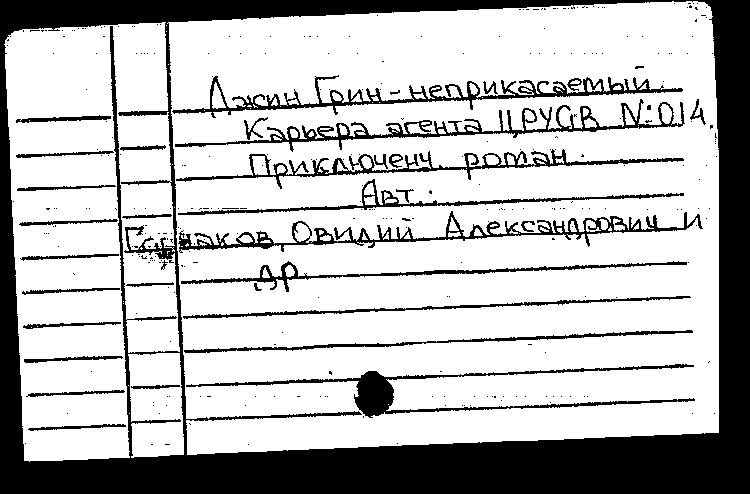 Джин Грин - неприкасаемый.
Карьера агента ЦРУGB №014.
Приключенч. роман.
Авт.:
Горчаков, Овидий Александрович и
др.